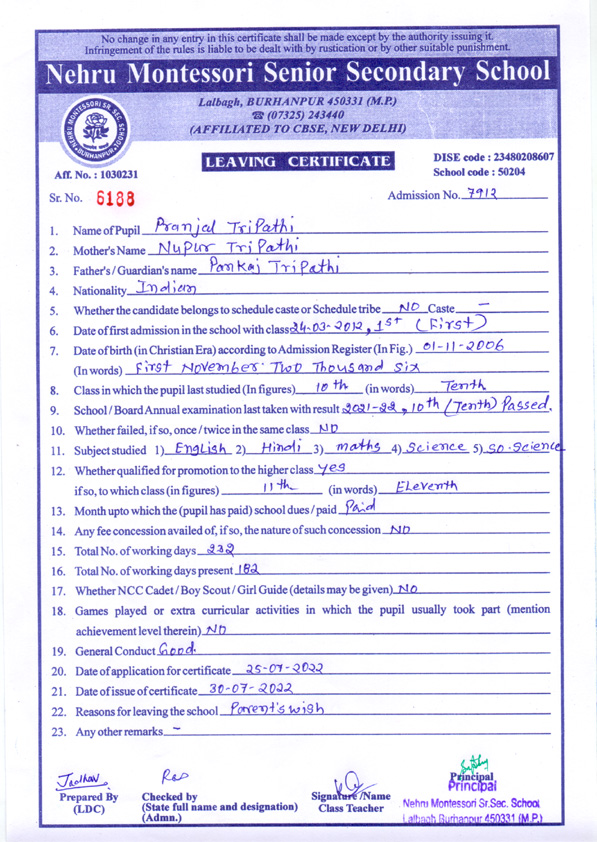 No change in any entry in this certificate shall be made except by the authority issuing it.
Infringement of the rules is liable to be dealt with by rustication or by other suitable punishment.
Nehru Montessori Senior Secondary School
Lalbagh, BURHANPUR 450331 (M.P.)
☎ (07325) 243440
(AFFILIATED TO CBSE, NEW DELHI)
NEHRU MONTESSORI SR. SEC. SCHOOL
BURHANPUR
LEAVING CERTIFICATE
DISE code : 23480208607
School code : 50204
Aff. No. : 1030231
Sr. No. 6188
Admission No. 7912
1. Name of Pupil Pranjal TriPathi
2. Mother's Name Nupur TriPathi
3. Father's / Guardian's name Pankaj TriPathi
4. Nationality Indian
5. Whether the candidate belongs to schedule caste or Schedule tribe NO Caste –
6. Date of first admission in the school with class 24-03-2012, 1st (First)
7. Date of birth (in Christian Era) according to Admission Register (In Fig.) 01-11-2006
(In words) First November Two Thousand Six
8. Class in which the pupil last studied (In figures) 10th (in words) Tenth
9. School / Board Annual examination last taken with result 2021-22, 10th (Tenth) Passed.
10. Whether failed, if so, once / twice in the same class NO
11. Subject studied 1) English 2) Hindi 3) maths 4) Science 5) SO-Science
12. Whether qualified for promotion to the higher class yes
if so, to which class (in figures) 11th (in words) Eleventh
13. Month upto which the (pupil has paid) school dues / paid Paid
14. Any fee concession availed of, if so, the nature of such concession NO
15. Total No. of working days 232
16. Total No. of working days present 182
17. Whether NCC Cadet / Boy Scout / Girl Guide (details may be given) NO
18. Games played or extra curricular activities in which the pupil usually took part (mention
achievement level therein) NO
19. General Conduct Good.
20. Date of application for certificate 25-07-2022
21. Date of issue of certificate 30-07-2022
22. Reasons for leaving the school Parent's wish
23. Any other remarks –
Jadhav
Prepared By
(LDC)
Rao
Checked by
(State full name and designation)
(Admn.)
Signature /Name
Class Teacher
Principal
Principal
Nehru Montessori Sr.Sec. School
Lalbagh Burhanpur 450331 (M.P.)